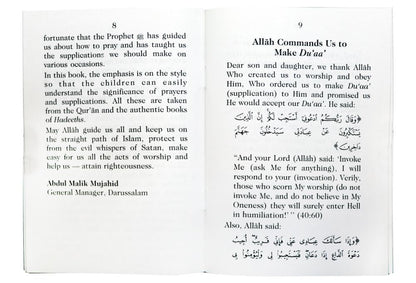 8
fortunate that the Prophet ﷺ has guided
us about how to pray and has taught us
the supplications we should make on
various occasions.
In this book, the emphasis is on the style
so that the children can easily
understand the significance of prayers
and supplications. All these are taken
from the Qur'ân and the authentic books
of Hadeeths.
May Allâh guide us all and keep us on
the straight path of Islam, protect us
from the evil whispers of Satan, make
easy for us all the acts of worship and
help us — attain righteousness.
Abdul Malik Mujahid
General Manager, Darussalam
9
Allâh Commands Us to
Make Du'aa'
Dear son and daughter, we thank Allâh
Who created us to worship and obey
Him, Who ordered us to make Du'aa'
(supplication) to Him and promised us
He would accept our Du'aa'. He said:
﴿وَقَالَ رَبُّكُمُ ادْعُونِي أَسْتَجِبْ لَكُمْ إِنَّ الَّذِينَ
يَسْتَكْبِرُونَ عَنْ عِبَادَتِي سَيَدْخُلُونَ جَهَنَّمَ
دَاخِرِينَ﴾
"And your Lord (Allâh) said: 'Invoke
Me (ask Me for anything), I will
respond to your (invocation). Verily,
those who scorn My worship (do not
invoke Me, and do not believe in My
Oneness) they will surely enter Hell
in humiliation!' " (40:60)
Also, Allâh said:
﴿وَإِذَا سَأَلَكَ عِبَادِي عَنِّي فَإِنِّي قَرِيبٌ أُجِيبُ
دَعْوَةَ الدَّاعِ إِذَا دَعَانِ فَلْيَسْتَجِيبُوا لِي وَلْيُؤْمِنُوا بِي